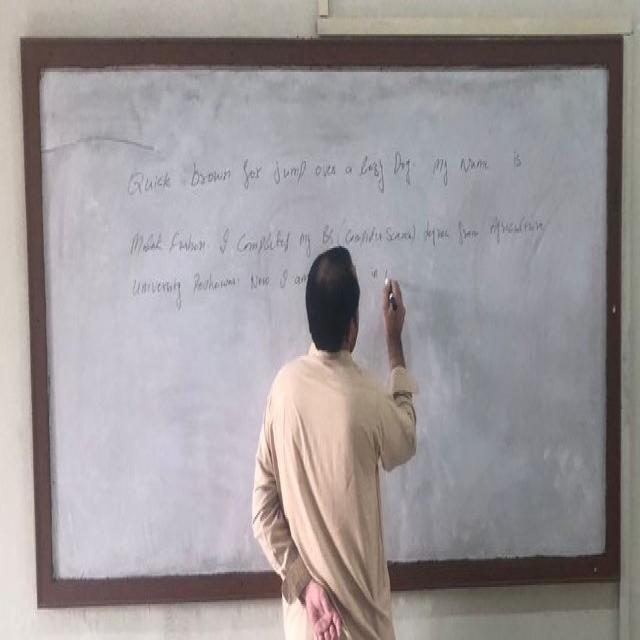 Quick brown fox jump over a lazy Dog. my name is
Malak I Completed my BS (Computer Science) degree from Agriculture
University Peshawar. Now I am